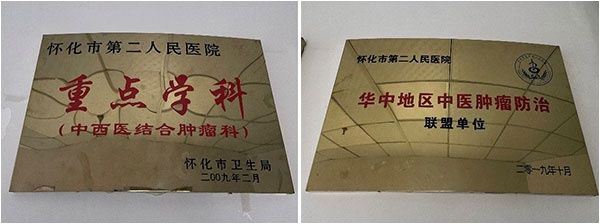 怀化市第二人民医院
重点学科
(中西医结合肿瘤科)
怀化市卫生局
二00九年二月
怀化市第二人民医院
华中地区中医肿瘤防治
联盟单位
二零一九年十月